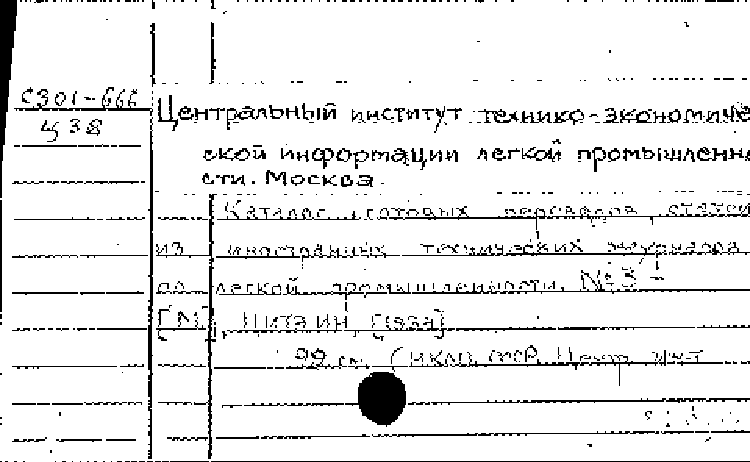 С301-666
Ц38
Центральный институт технико-экономиче
ской информации легкой промышленно
сти. Москва.
Каталог готовых переводов статей
из иностранных технических журналов
по легкой промышленности. № 3 -
[М], ЦИТЭИН, [1934]
29 см. (НКЛП СССР. Центр. инт